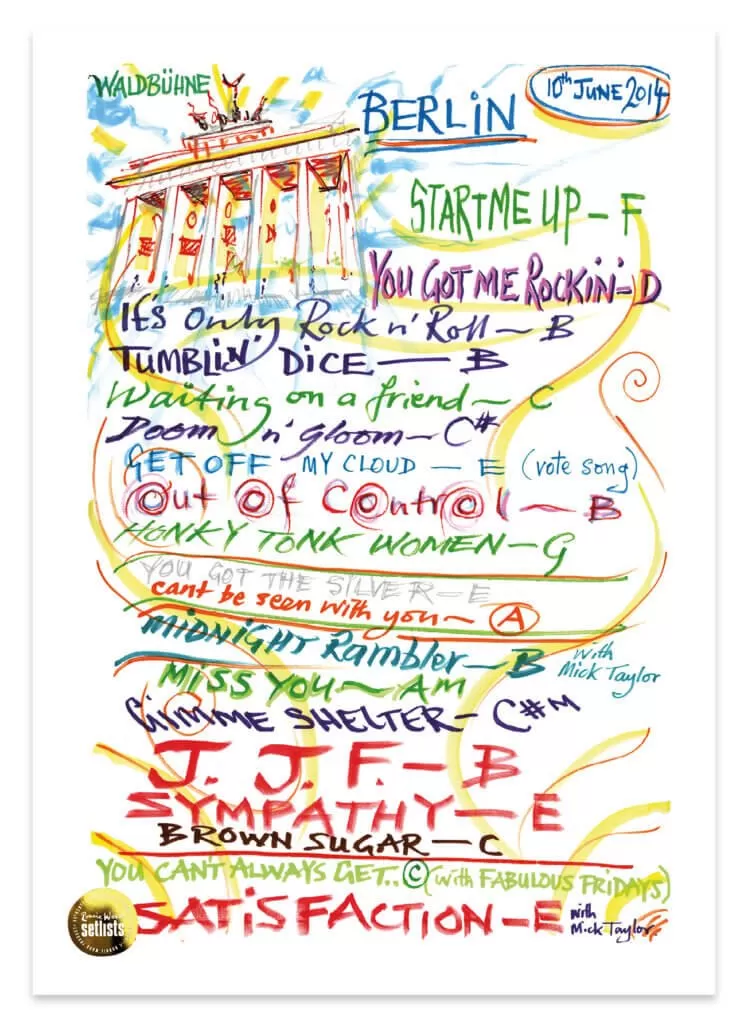 WALDBÜHNE
BERLIN
10th JUNE 2014
START ME UP – F
YOU GOT ME ROCKIN' – D
It's Only Rock n' Roll – B
TUMBLIN' DICE — B
Waiting on a friend – C
Doom n' gloom – C#
GET OFF MY CLOUD – E (vote song)
Out Of Control – B
HONKY TONK WOMEN – G
YOU GOT THE SILVER – E
cant be seen with you – A
MIDNIGHT Rambler – B with Mick Taylor
MISS YOU – AM
GIMME SHELTER – C#M
J. J. F. – B
SYMPATHY – E
BROWN SUGAR – C
YOU CANT ALWAYS GET.. C (with FABULOUS FRIDAYS)
SATISFACTION – E with Mick Taylor
Ronnie Wood
setlists